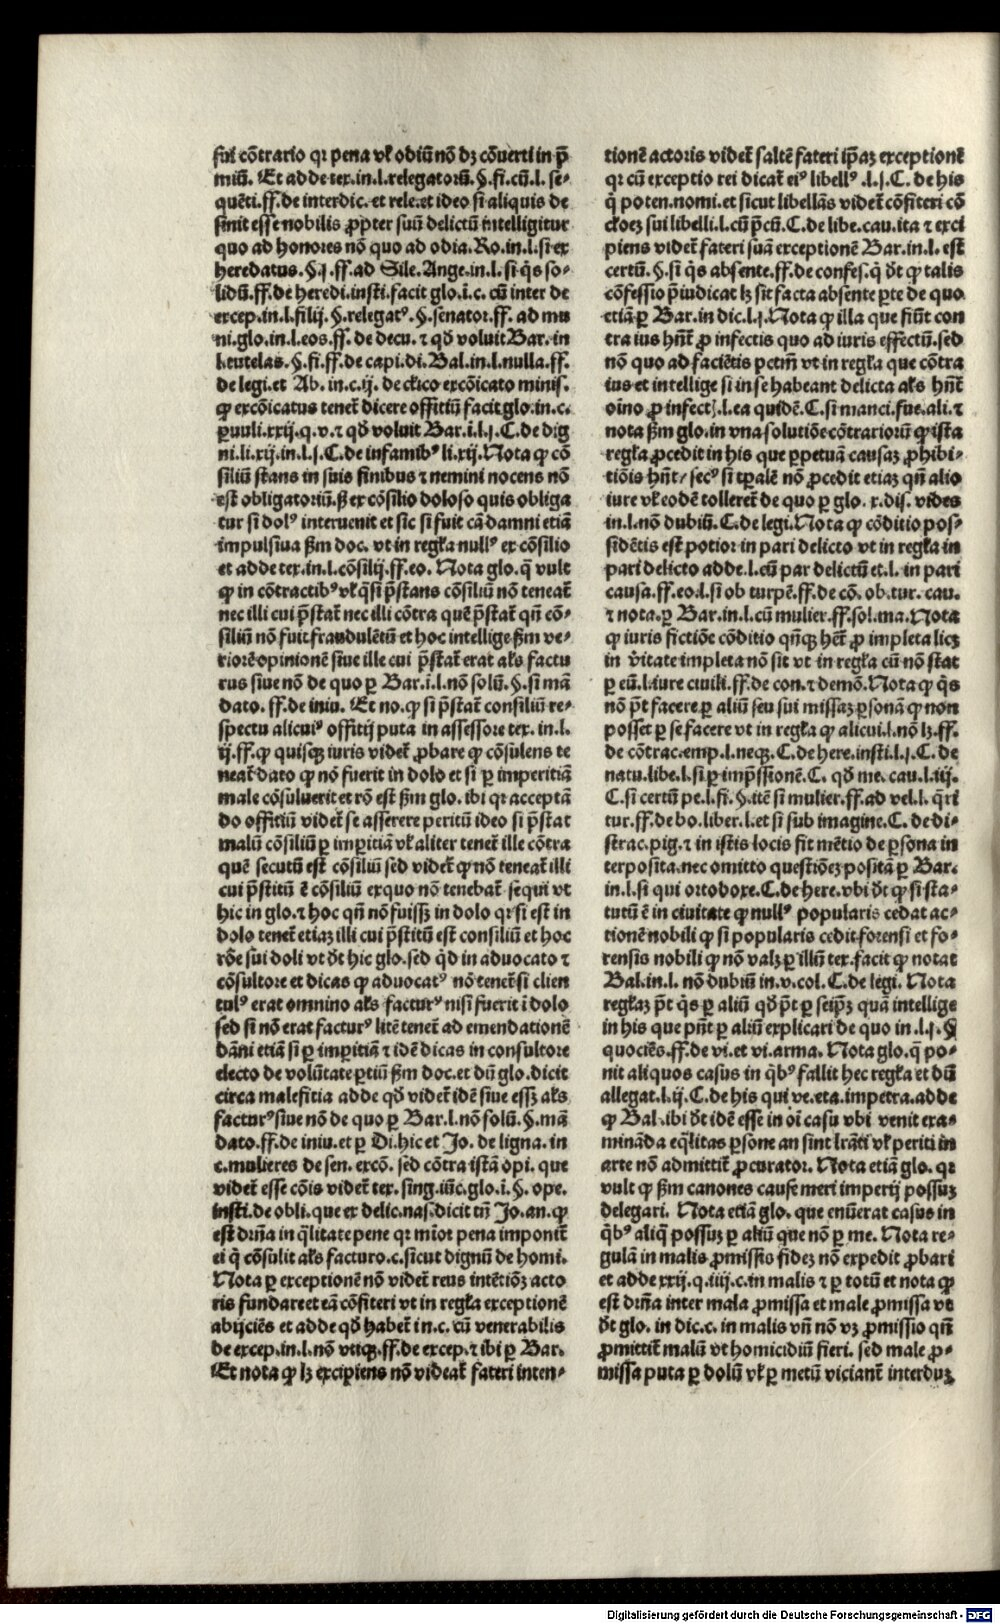 fui cōtrario qꝛ pena vꝉ odiū nō dꝫ cōuerti in p̄
miū. Et adde tex.in.l.relegatorū.§.fi.cū.l. se⸗
quēti.ff.de interdic.et rele.et ideo si aliquis de
sinit esse nobilis ꝓpter suū delictū intelligitur
quo ad honores nō quo ad odia. Ro.in.l.si ex
heredatus.§.j.ff.ad Sile. Ange.in.l. si q̄s so⸗
lidū.ff.de heredi.insti.facit glo.ī.c. cū inter de
excep.in.l.filij.§.relegatꝰ.§.senator.ff. ad mu
ni.glo.in.l.eos.ff. de decu. ⁊ qđ voluit Bar. in
l.tutelas.§.fi.ff.de capi.di.Bal.in.l.nulla.ff.
de legi.et Ab. in.c.ij. de cꝉico excōicato minis.
ꝙ excōicatus tenet̄ dicere offitiū facit glo.in.c.
ꝑuuli.xxij.q.v.⁊ qđ voluit Bar.ī.l.j.C.de dig
ni.li.xij.in.l.j.C.de infamibꝰ li.xij.Nota ꝙ cō
siliū stans in suis finibus ⁊ nemini nocens nō
est obligatoriū.sꝫ ex cōsilio doloso quis obliga
tur si dolꝰ interuenit et sic si fuit cā damni etiā
impulsiua ẜm doc. vt in regꝉa nullꝰ ex cōsilio
et adde tex.in.l.cōsilij.ff.eo. Nota glo.q̄ vult
ꝙ in cōtractibꝰ vꝉ q̄si p̄stans cōsiliū nō teneat̄
nec illi cui p̄stat̄ nec illi cōtra quē p̄stat̄ qn̄ cō⸗
siliū nō fuit fraudulētū et hoc intellige ẜm ve⸗
riorē opinionē siue ille cui p̄stat̄ erat aꝉs factu
rus siue nō de quo ꝑ Bar.ī.l.nō solū.§.si mā
dato. ff.de iniu. Et no.ꝙ si p̄stat̄ consiliū re⸗
spectu alicuiꝰ offitij puta in assessore tex. in.l.
ij.ff.ꝙ quisqꝫ iuris videt̄ ꝓbare ꝙ cōsulens te
neat̄ dato ꝙ nō fuerit in dolo et si ꝑ imperitiā
male cōsuluerit et rō est ẜm glo. ibi qꝛ acceptā
do offitiū videt̄ se asserere peritū ideo si p̄stat
malū cōsiliū ꝑ imꝑitiā vꝉ aliter tenet̄ ille cōtra
quē secutū est cōsiliū sed videt̄ ꝙ nō teneat̄ illi
cui p̄stitū ē cōsiliū exquo nō tenebat̄ sequi vt
hic in glo.⁊ hoc qn̄ nō fuissꝫ in dolo qꝛ si est in
dolo tenet̄ etiaꝫ illi cui p̄stitū est consiliū et hoc
rōe sui doli vt d̄t hic glo.sed q̄d in aduocato ⁊
cōsultore et dicas ꝙ aduocatꝰ nō tenet̄ si clien
tulꝰ erat omnino aꝉs facturꝰ nisi fuerit ī dolo
sed si nō erat facturꝰ litē tenet̄ ad emendationē
dāni etiā si ꝑ imꝑitiā ⁊ idē dicas in consultore
electo de volūtate ꝑtiū ẜm doc.et dū glo. dicit
circa malefitia adde qđ videt̄ idē siue essꝫ aꝉs
facturꝰ siue nō de quo ꝑ Bar.l.nō solū.§.mā
dato.ff.de iniu.et ꝑ Di.hic et Jo. de ligna. in
c.mulieres de sen. excō. sed cōtra istā opi. que
videt̄ esse cōis videt̄ tex. sing.iūc.glo.ī.§. ope.
insti.de obli.que ex delic.nas.dicit tn̄ Jo.an.ꝙ
est dr̄ūa in q̄litate pene qꝛ miot pena imponit̄
ei q̄ cōsulit aꝉs facturo.c.sicut dignū de homi.
Nota ꝑ exceptionē nō videt̄ reus intētiōꝫ acto
ris fundare et eā cōfiteri vt in regꝉa exceptionē
abijciēs et adde qđ habet̄ in.c. cū venerabilis
de excep.in.l.nō vtiqꝫ.ff.de excep.⁊ ibi ꝑ Bar.
Et nota ꝙ lꝫ excipiens nō videat̄ fateri inten⸗
tionē actoris videt̄ saltē fateri ip̄aꝫ exceptionē
qꝛ cū exceptio rei dicat̄ eiꝰ libellꝰ .l.j.C. de his
q̄ poten.nomi.et sicut libellās videt̄ cōfiteri cō
cꝉoeꝫ sui libelli.l.cū p̄cū.C.de libe.cau.ita ⁊ exci
piens videt̄ fateri suā exceptionē Bar.in.l. est
certū.§.si q̄s absente.ff.de confes.q̄ d̄t ꝙ talis
cōfessio p̄iudicat lꝫ sit facta absente ꝑte de quo
etiā ꝑ Bar.in dic.l.j.Nota ꝙ illa que fiūt con
tra ius hn̄t̄ ꝓ infectis quo ad iuris effectū.sed
nō quo ad faciētis pctm̄ vt in regꝉa que cōtra
ius et intellige si in se habeant delicta aꝉs hn̄t̄
oīno ꝓ infect.l.ea quidē.C.si manci.fue.ali.⁊
nota ẜm glo.in vna solutiōe cōtrariorū ꝙ ista
regꝉa ꝓcedit in his que ꝑpetuā causaꝫ ꝓhibi⸗
tiōis hn̄t/ secꝰ si tꝑalē nō ꝓcedit etiaꝫ qn̄ alio
iure vꝉ eodē tolleret̄ de quo ꝑ glo. x.dis. vides
in.l.nō dubiū.C.de legi.Nota ꝙ cōditio pos⸗
sidētis est potior in pari delicto vt in regꝉa in
pari delicto adde.l.cū par delictū et.l. in pari
causa.ff.eo.l.si ob turpē.ff.de cō. ob.tur. cau.
⁊ nota.ꝑ Bar.in.l.cū mulier.ff.sol.ma.Nota
ꝙ iuris fictiōe cōditio qn̄qꝫ het̄ ꝓ impleta licꝫ
in v̄itate impleta nō sit vt in regꝉa cū nō stat
ꝑ eū.l.iure ciuili.ff.de con.⁊ demō.Nota ꝙ q̄s
nō p̄t facere ꝑ aliū seu sui missaꝫ ꝑsonā ꝙ non
posset ꝑ se facere vt in regꝉa ꝙ alicui.l.nō lꝫ.ff.
de cōtrac.emp.l.neqꝫ.C.de here.insti.l.j.C.de
natu.libe.l.si ꝑ imp̄ssionē.C. qđ me. cau.l.iij.
C.si certū pe.l.fi.§.itē si mulier.ff.ad vel.l. q̄ri
tur.ff.de bo.liber.l.et si sub imagine.C. de di⸗
strac.pig.⁊ in istis locis fit mētio de ꝑsona in
terposita.nec omitto questiōeꝫ positā ꝑ Bar.
in.l.si qui ortodoxe.C.de here.vbi d̄t ꝙ si sta⸗
tutū ē in ciuitate ꝙ nullꝰ popularis cedat ac⸗
tionē nobili ꝙ si popularis cedit forensi et fo⸗
rensis nobili ꝙ nō valꝫ ꝑ illū tex.facit ꝙ notat
Bal.in.l. nō dubiū in.v.col. C.de legi. Nota
regꝉaꝫ p̄t q̄s ꝑ aliū qđ p̄t ꝑ seip̄ꝫ quā intellige
in his que pn̄t ꝑ aliū explicari de quo in.l.j.§
quociēs.ff.de vi.et vi.arma. Nota glo.q̄ po⸗
nit aliquos casus in q̄bꝰ fallit hec regꝉa et dū
allegat.l.ij.C.de his qui ve.eta.impetra.adde
ꝙ Bal.ibi d̄t idē esse in oī casu vbi venit exa⸗
minādo eq̄litas ꝑsone an sint lr̄ati vꝉ periti in
arte nō admittit̄ ꝓcurator. Nota etiā glo. qꝛ
vult ꝙ ẜm canones cause meri imperij possuꝫ
delegari. Nota etiā glo. que enūerat casus in
q̄bꝰ aliq̄ possuꝫ ꝑ aliū que nō ꝑ me. Nota re⸗
gulā in malis ꝓmissis fideꝫ nō expedit ꝓbari
et adde xxij.q.iiij.c.in malis ⁊ ꝑ totū et nota ꝙ
est dr̄ūa inter mala ꝓmissa et male ꝓmissa vt
d̄t glo. in dic.c. in malis vn̄ nō vꝫ ꝓmissio qn̄
ꝓmittit̄ malū vt homicidiū fieri. sed male ꝓ⸗
missa puta ꝑ dolū vꝉ ꝑ metū viciant̄ interduꝫ
Digitalisierung gefördert durch die Deutsche Forschungsgemeinschaft - DFG